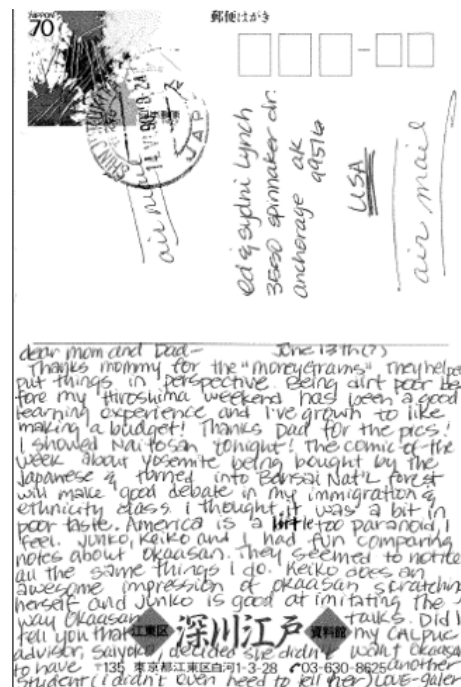 NIPPON
70
郵便はがき
SHINJUKU
JAPAN
air mail
ed & sydni lynch
3550 spinnaker dr.
anchorage ak
99516
USA
air mail
dear mom and Dad— June 13th(?)
Thanks mommy for the "moneygrams". They helped
put things in perspective. Being dirt poor be-
fore my Hiroshima weekend has been a good
learning experience and I've grown to like
making a budget! Thanks Dad for the pics!
I showed Naitosan tonight! The comic of the
week about yosemite being bought by the
Japanese & turned into Bonsai Nat'l forest
will make good debate in my immigration &
ethnicity class. i thought it was a bit in
poor taste. America is a little too paranoid, I
feel. Junko, Keiko and I had fun comparing
notes about okaasan. They seemed to notice
all the same things i do. Keiko does an
awesome impression of okaasan scratching
herself and Junko is good at imitating the
way Okaasan talks. Did I
tell you that my CALPUC
advisor, Saiyoko decided she didn't want okaasan
to have another
student (i didn't even need to tell her) LOVE-
江東区 深川江戸 資料館
〒135 東京都江東区白河1-3-28 ☎03-630-8625